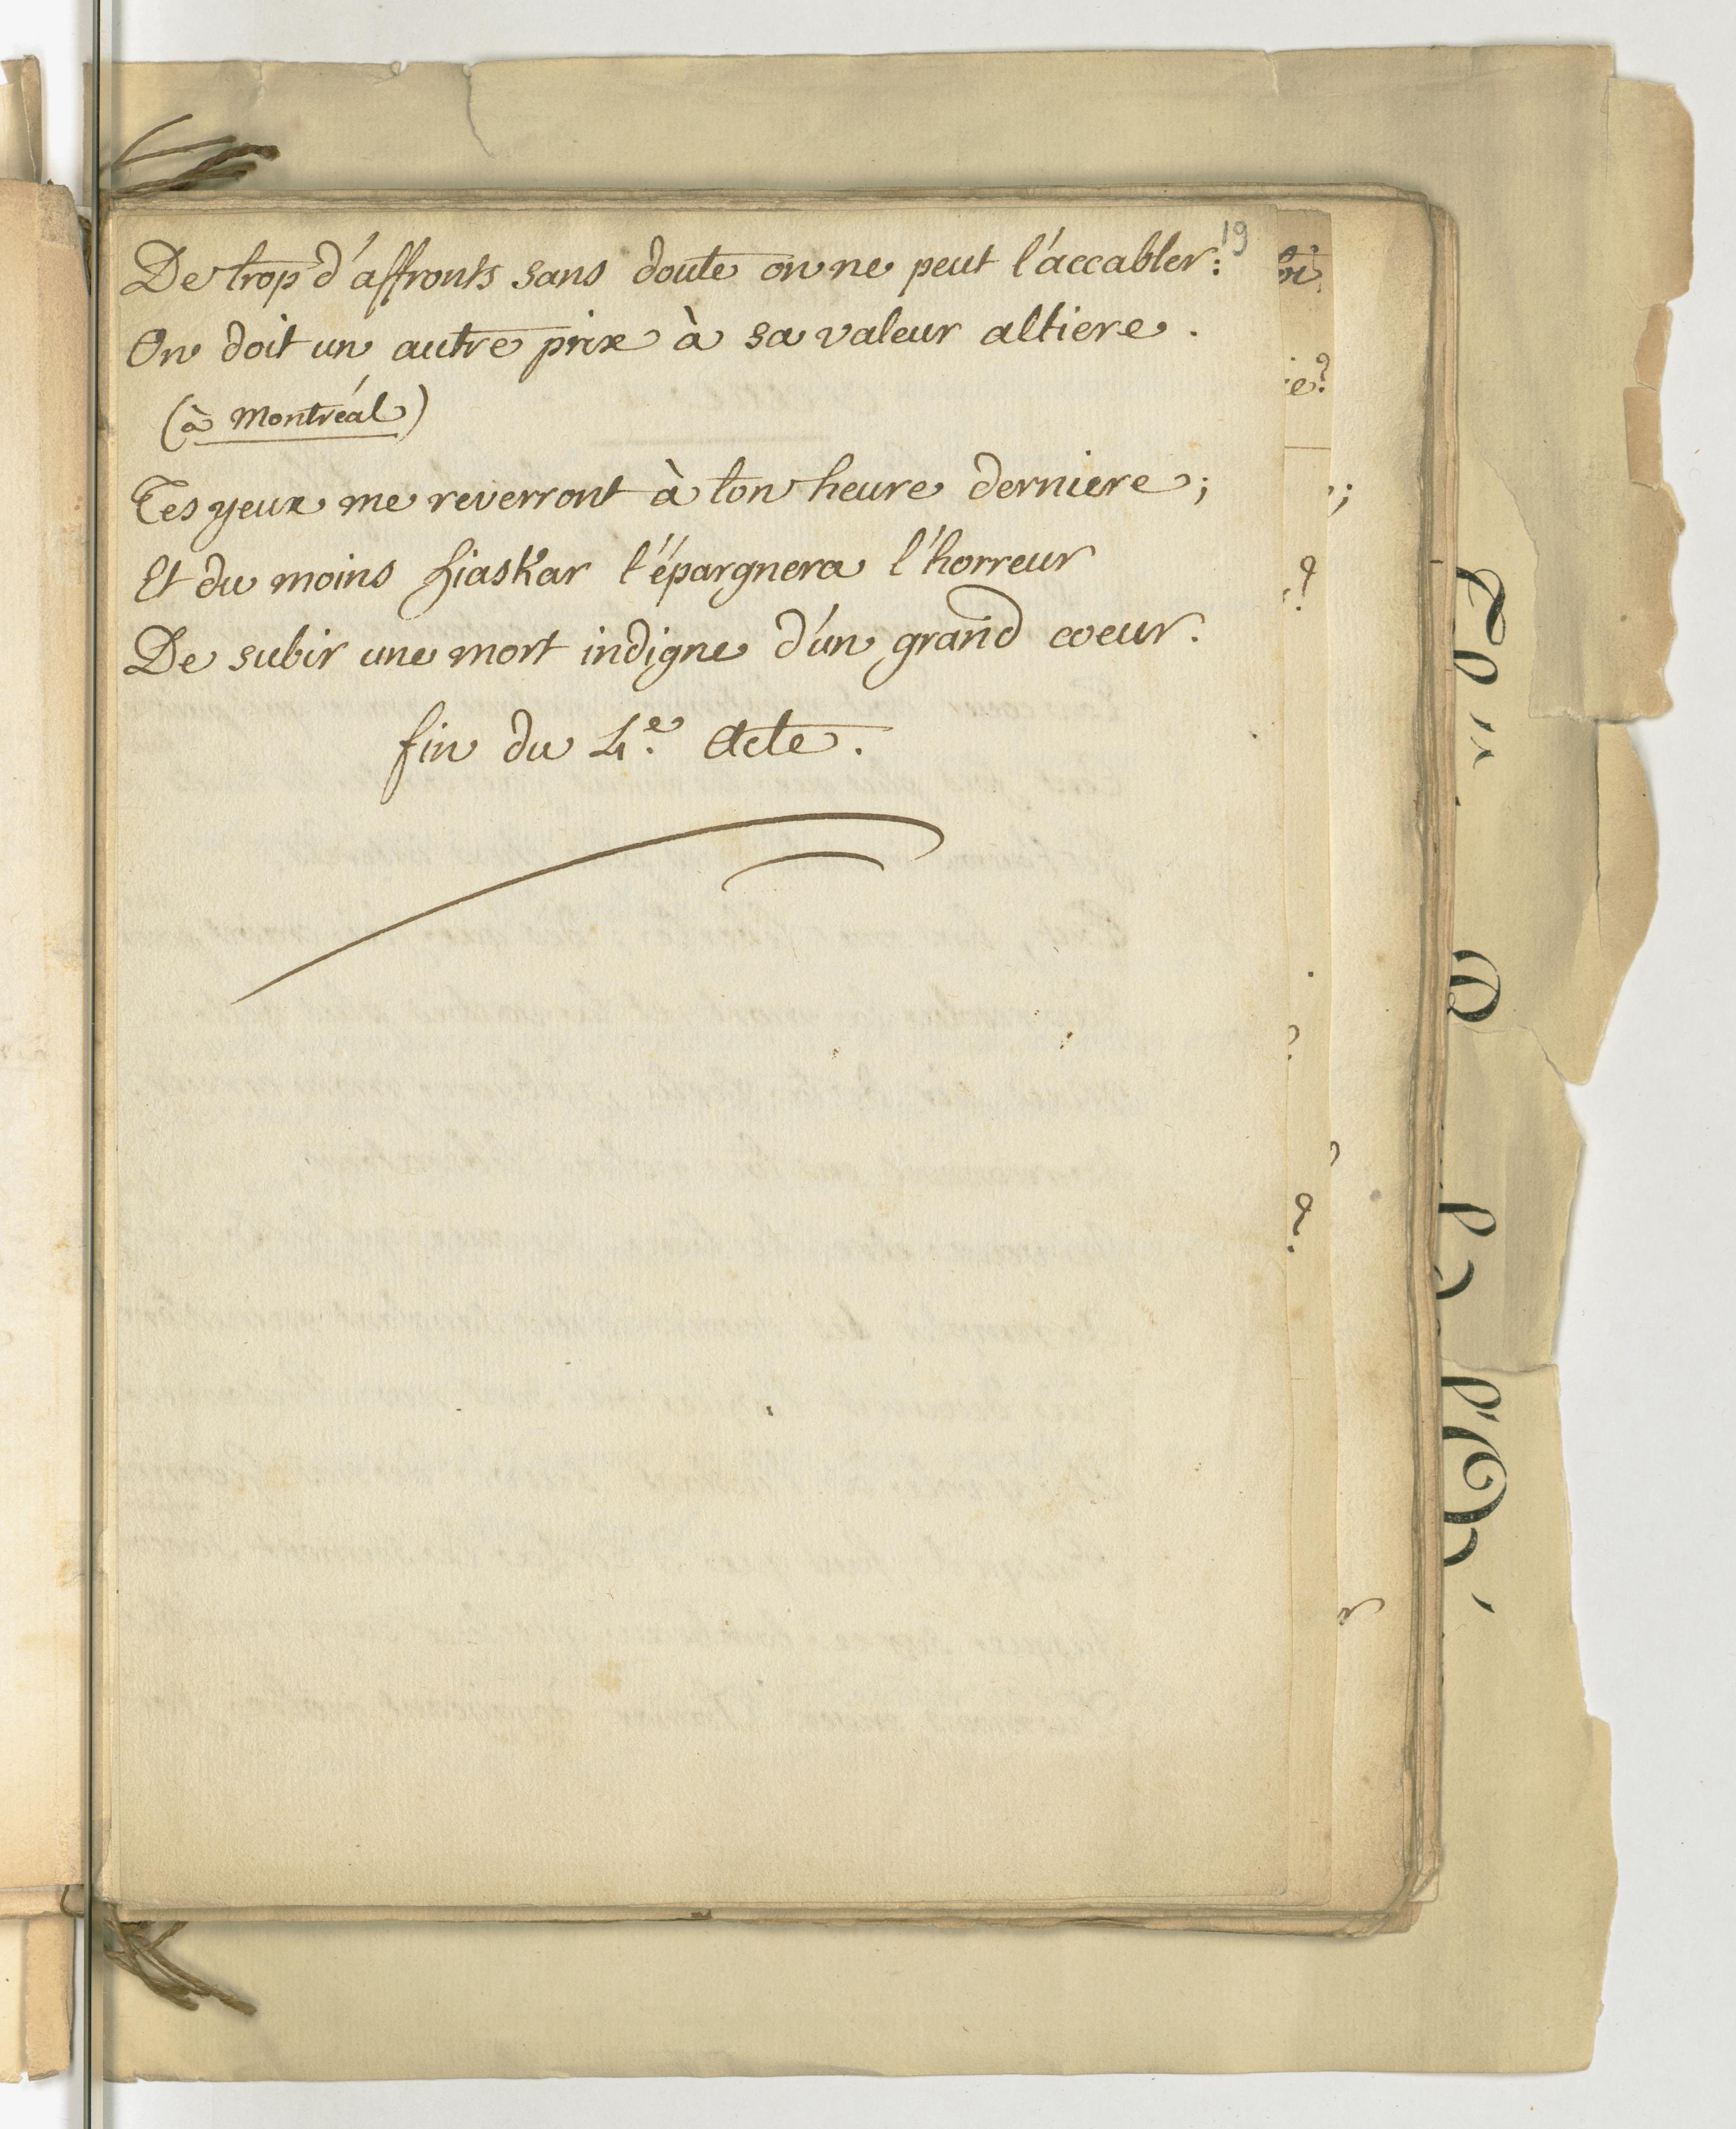 19
De trop d'affronts sans doute on ne peut l'accabler:
On doit un autre prix à sa valeur altiere.
(à Montréal)
Tes yeux me reverront à ton heure derniere;
Et du moins hiaskar t'épargnera l'horreur
De subir une mort indigne d'un grand coeur.
fin du 4e. Acte.